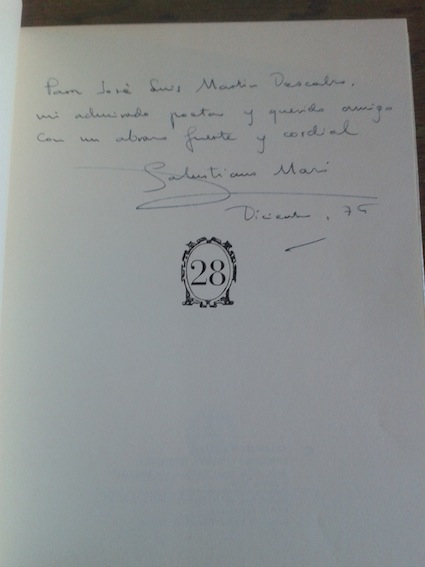 Para José Luis Martín Descalzo,
mi admirado poeta y querido amigo
con un abrazo fuerte y cordial
Salustiano Masó
Diciembre, 75
28